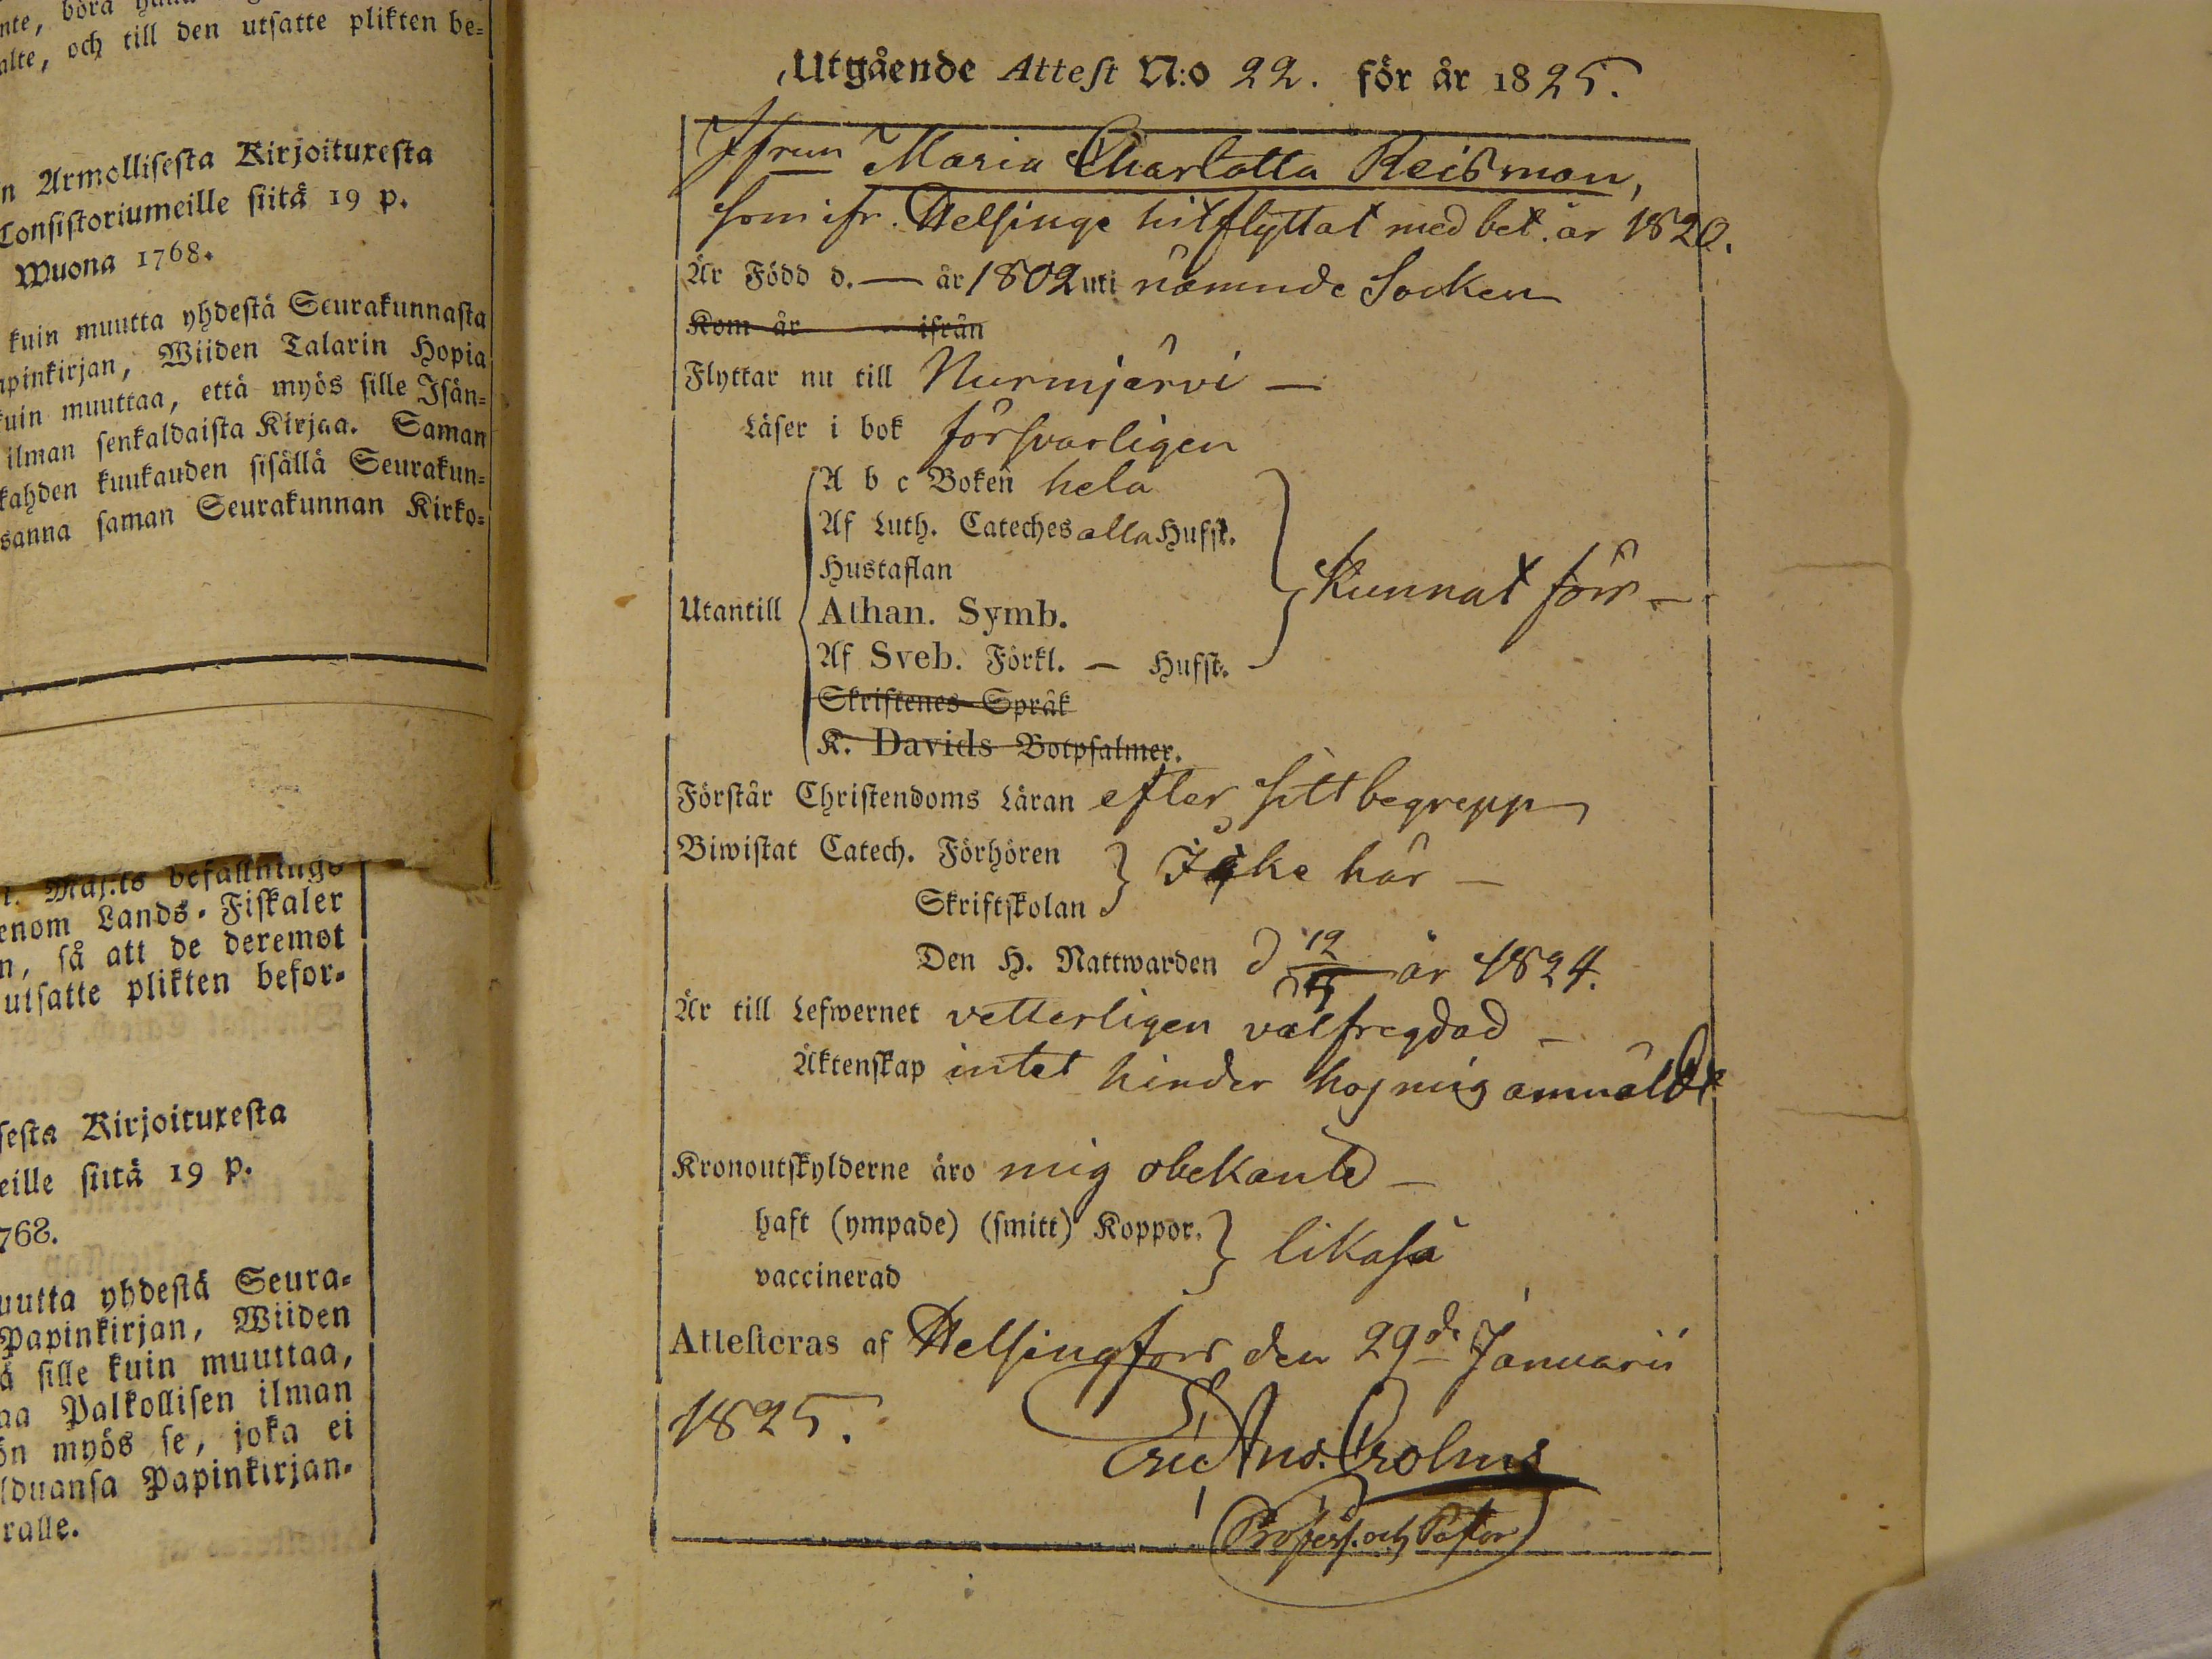 nte, böra
alte, och till den utsatte plikten be-
n Armollisesta Kirjoituxesta
Consistoriumeille siitä 19 p.
Wuona 1768.
kuin muutta yhdestä Seurakunnasta
apinkirjan, Wiiden Talarin Hopia
kuin muuttaa, että myös sille Isän-
ilman senkaldaista Kirjaa. Saman
kahden kuukauden sisällä Seurakun-
sanna saman Seurakunnan Kirko-
t. Maj:ts befallnings
enom Lands-Fiskaler
n, så att de deremot
utsatte plikten befor-
sesta Kirjoituxesta
eille siitä 19 p.
768.
uutta yhdestä Seura-
Papinkirjan, Wiiden
ä sille kuin muuttaa,
aa Palkollisen ilman
ön myös se, joka ei
lduansa Papinkirjan-
ralle.
Utgående Attest N:o 22. för år 1825.
Jfrun Maria Charlotta Reisman,
som ifr. Helsinge hitflyttat med bet. år 1820.
Är Född d. — år 1802 uti nämnde Socken
Kom år ifrån
Flyttar nu till Nurmjärvi —
Läser i bok försvarligen
A b c Boken hela
Af Luth. Cateches alla Hufst.
Hustaflan
Utantill Athan. Symb. Kunnat förr —
Af Sveb. Förkl. — Hufst.
Skriftenes Språk
K. Davids Botpsalmer.
Förstår Christendoms Läran efter sitt begrepp
Biwistat Catech. Förhören Icke här —
Skriftskolan
Den H. Nattwarden d 12 år 1824.
Är till Lefwernet vetterligen välfregdad —
Äktenskap intet hinder hos mig anmäldt
Kronoutskylderne äro mig obekante —
haft (ympade) (smitt) Koppor. likaså
vaccinerad
Attesteras af Helsingfors den 29de Januarii
1825.
Eric And. Crohns
Profess. och Pastor